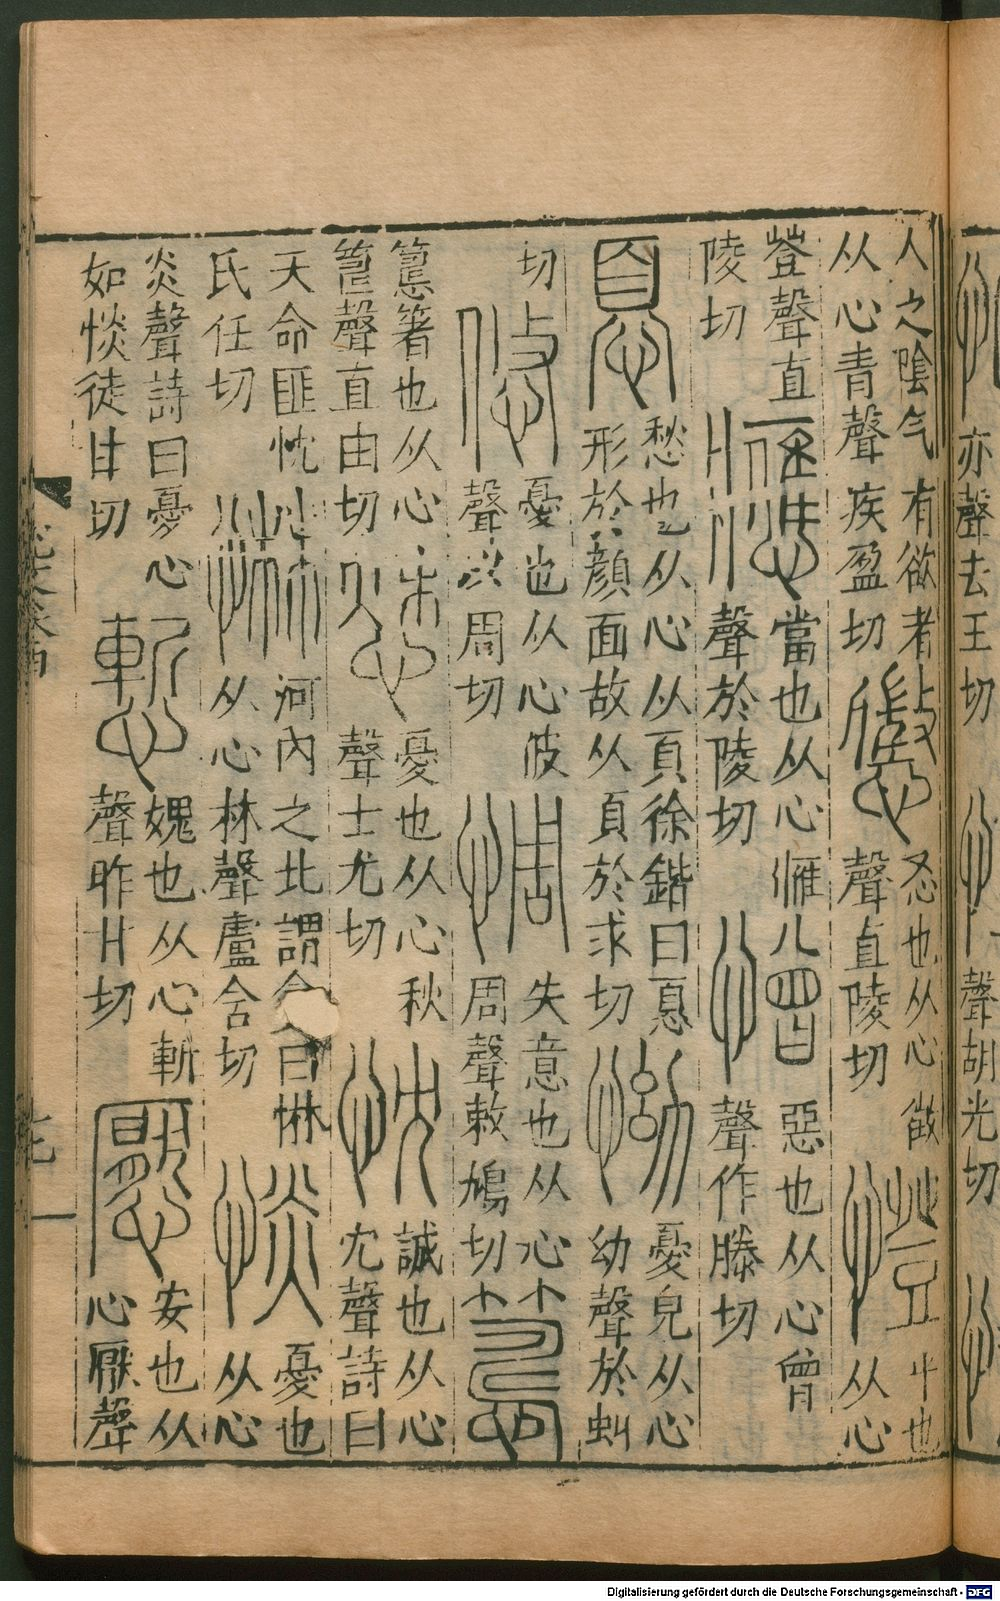 亦聲去王切 聲胡光切
人之陰气有欲者从心青聲疾盈切 懲 㣻也从心徵聲直陵切 憕 平也从心
登聲直陵切 應 當也从心䧹聲於陵切 憎 惡也从心曾聲作滕切
𢝊 愁也从心从頁徐鍇曰𢝊形於顏面故从頁於求切 怮 憂皃从心幼聲於虯
切 悠 憂也从心攸聲以周切 惆 失意也从心周聲敕鳩切
箸也从心聲直由切 愁 憂也从心秋聲士尤切 忱 誠也从心冘聲詩曰
天命匪忱氏任切 惏 河內之北謂貪曰惏从心林聲盧含切 惔 憂也从心
炎聲詩曰憂心如惔徒甘切 慙 媿也从心斬聲昨甘切 懕 安也从心厭聲
Digitalisierung gefördert durch die Deutsche Forschungsgemeinschaft - DFG